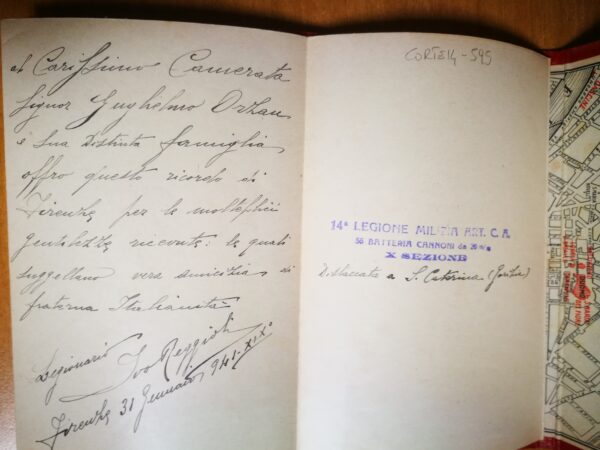 al Carissimo Camerata
Signor Guglielmo Orzan
e Sua Distinta famiglia
offro questo ricordo di
Firenze per le molteplici
gentilezze ricevute: le quali
suggellano vera amicizia di
fraterna Italianità
Legionario Ivo Reggioli
Firenze 31 Gennaio 941-XIX°
CORTE14-545
14ª LEGIONE MILIZIA ART. C.A.
BATTERIA CANNONI da
X SEZIONE
Distaccata a S. Caterina (Gorizia)